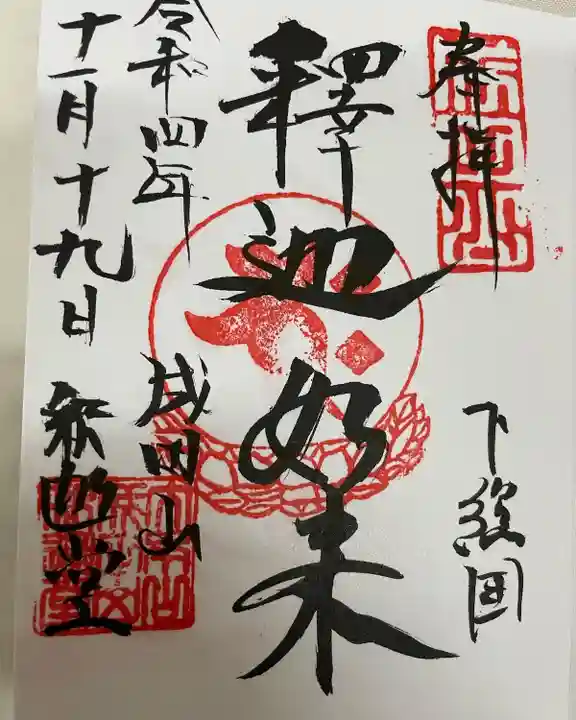 奉拝
下総国
釋迦如来
令和四年
十一月十九日
成田山
釈迦堂